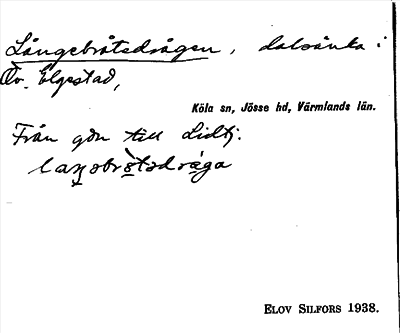 Långebråtedrågen, dalsänka i
Öv. Elgestad,
Köla sn, Jösse hd, Värmlands län.
Från gdn till Lidtj.
ELOV SILFORS 1938.